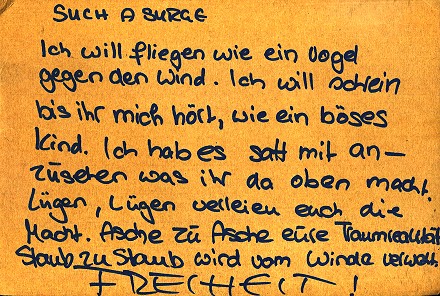 SUCH A SURGE
Ich will fliegen wie ein Vogel
gegen den Wind. Ich will schrein
bis ihr mich hört, wie ein böses
Kind. Ich hab es satt mit an-
zusehen was ihr da oben macht.
Lügen, Lügen verleien euch die
Macht. Asche zu Asche eure Traumrealität
Staub zu Staub wird vom Winde verweht.
FREIHEIT!